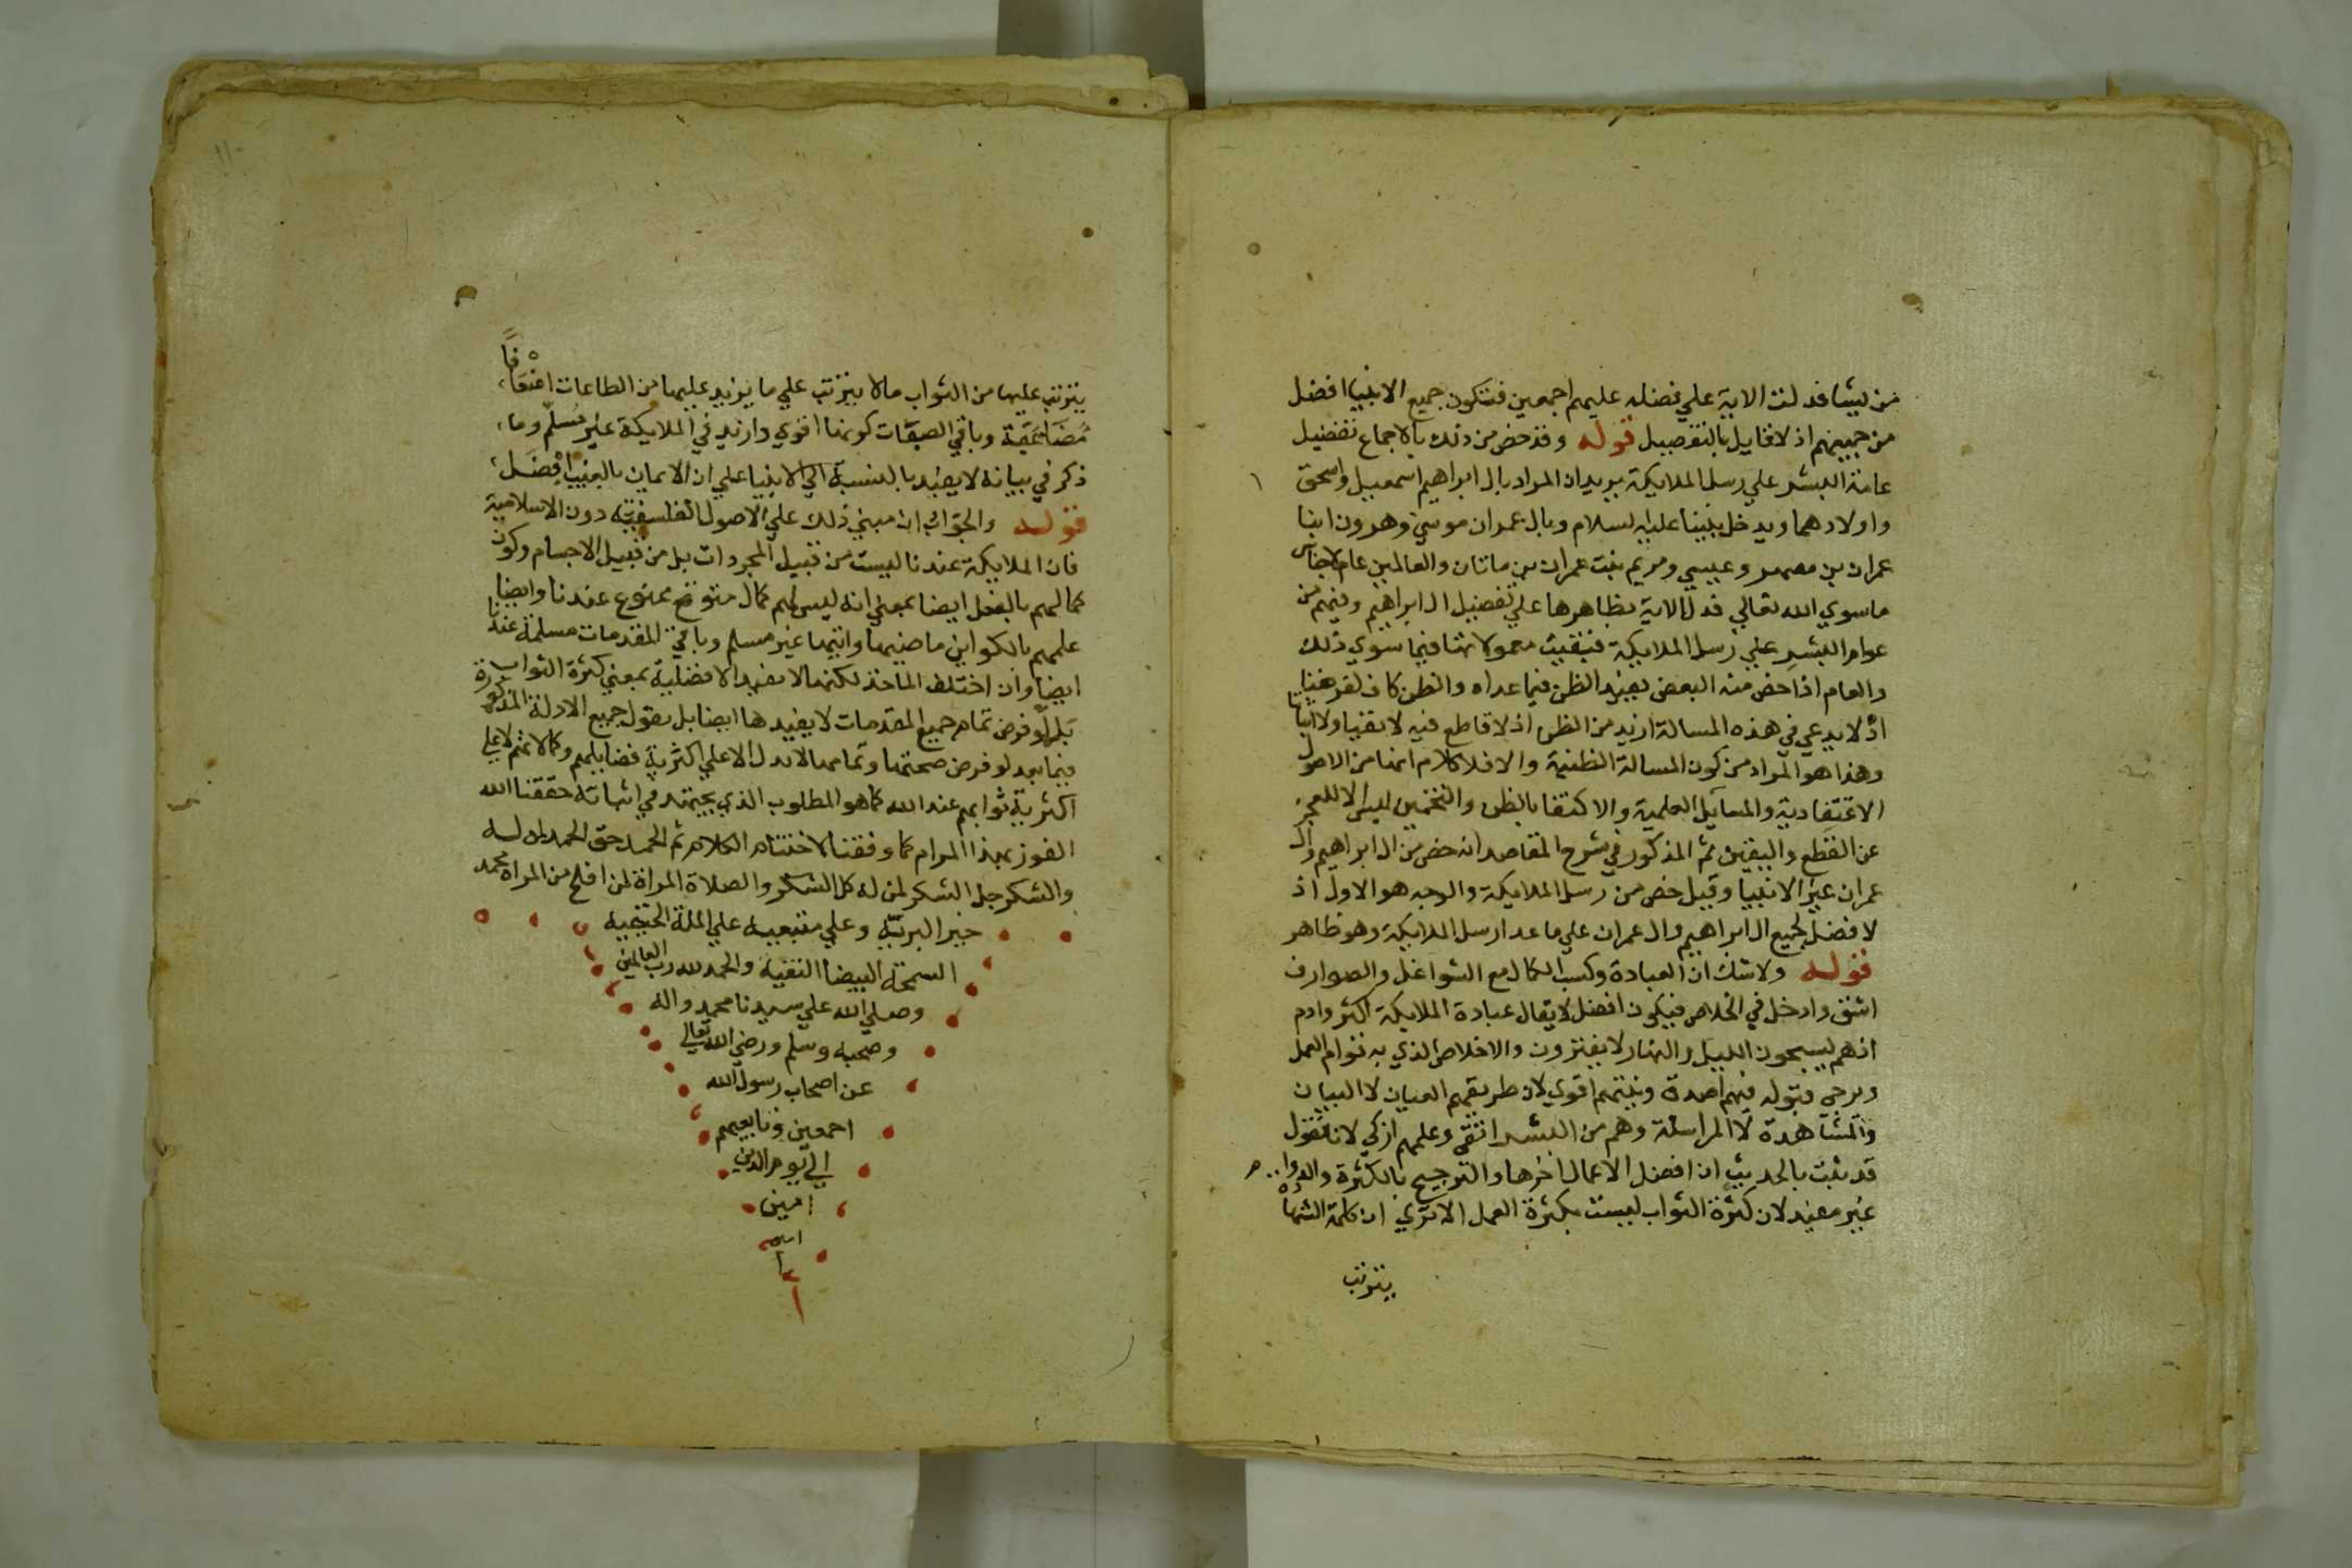 من يشا فدلت الاية علي فضله عليهم اجمعين فتكون جميع الانبيا افضل
من جميعهم اذ لا قايل بالتفصيل قوله وقد خص من ذلك بالاجماع تفضيل
عامة البشر علي رسل الملايكة يريد ان المراد بال ابراهيم اسمعيل واسحق
واولادهما ويدخل نبينا عليه السلام وبال عمران موسي وهرون ابنا
عمران بن يصهر وعيسي ومريم بنت عمران بن ماتان والعالمين عام لاجناس
ما سوي الله تعالي فدل الاية بظاهرها علي تفضيل ال ابراهيم ومنهم من
عوام البشر علي رسل الملايكة فبقيت معمولا بها فيما سوي ذلك
والعام اذا خص منه البعض يفيد الظن فيما عداه والظن كاف لغرضنا
اذ لا يدعي في هذه المسالة ازيد من الظن اذ لا قاطع فيه لا نفيا ولا اثباتا
وهذا هو المراد من كون المسالة الظنية والا فلا كلام انها من الاصول
الاعتقادية والمسايل العلمية والاكتفا بالظن والتخمين ليس الا للعجز
عن القطع واليقين ثم المذكور في شرح المقاصد انه خص من ال ابراهيم وال
عمران غير الانبيا وقيل خص من رسل الملايكة والوجه هو الاول اذ
لا فضل لجميع ال ابراهيم وال عمران علي ما عدا رسل الملايكة وهو ظاهر
قوله ولا شك ان العبادة وكسب الكمال مع الشواغل والصوارف
اشق وادخل في الخلاص فيكون افضل لا يقال عبادة الملايكة اكثر وادوم
اذ هم يسبحون الليل والنهار لا يفترون والاخلاص الذي به قوام العمل
ويرجي قبوله فيهم اصدق ونيتهم اقوي لان طريقهم العيان لا البيان
والمشاهدة لا المراسلة وهم من البشر اتقي وعلمهم ازكي لانا نقول
قد ثبت بالحديث ان افضل الاعمال احزها والترجيح بالكثرة والدوام
غير مفيد لان كثرة الثواب ليست بكثرة العمل الا تري ان كلمة الشهادة
يترتب
يترتب عليها من الثواب ما لا يترتب علي ما يزيد عليها من الطاعات اضعافا
مضاعفة وباقي الصفات كونها اقوي وازيد في الملايكة غير مسلم وما
ذكر في بيانه لا يفيد بالنسبة الي الانبيا علي ان الايمان بالغيب افضل
قوله والجواب ان مبني ذلك علي الاصول الفلسفية دون الاسلامية
فان الملايكة عندنا ليست من قبيل المجردات بل من قبيل الاجسام وكون
كمالهم بالفعل ايضا بمعني انه ليس لهم كمال متوقع ممنوع عندنا وايضا
علمهم بالكواين ماضيها واتيها غير مسلم وباقي المقدمات مسلمة عندنا
ايضا وان اختلف الماخذ لكنها لا تفيد الافضلية بمعني كثرة الثواب
بل لو فرض تمام جميع المقدمات لا يفيدها ايضا بل نقول جميع الادلة المذكورة
فيما بعد لو فرض صحتها وتمامها لا تدل الا علي اكثرية فضايلهم وكمالاتهم لا علي
اكثرية ثوابهم عند الله كما هو المطلوب الذي يجتهد في اثباته حققنا الله
الفوز بهذا المرام كما وفقنا لاختتام الكلام ثم الحمد حق الحمد لمن له
والشكر جل الشكر لمن له كل الشكر والصلاة المراة لمن افلح من المراة محمد
خير البرية وعلي متبعيه علي الملة الحنيفية
السمحة البيضا النقية والحمد لله رب العالمين
وصلي الله علي سيدنا محمد واله
وصحبه وسلم ورضي الله تعالي
عن اصحاب رسول الله
اجمعين وتابعيهم
الي يوم الدين
امين